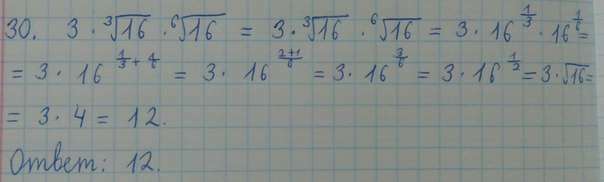 30. 3 · ∛16 · ⁶√16 = 3 · ∛16 · ⁶√16 = 3 · 16^(1/3) · 16^(1/6) =
= 3 · 16^(1/3 + 1/6) = 3 · 16^((2+1)/6) = 3 · 16^(3/6) = 3 · 16^(1/2) = 3 · √16 =
= 3 · 4 = 12.
Ответ: 12.